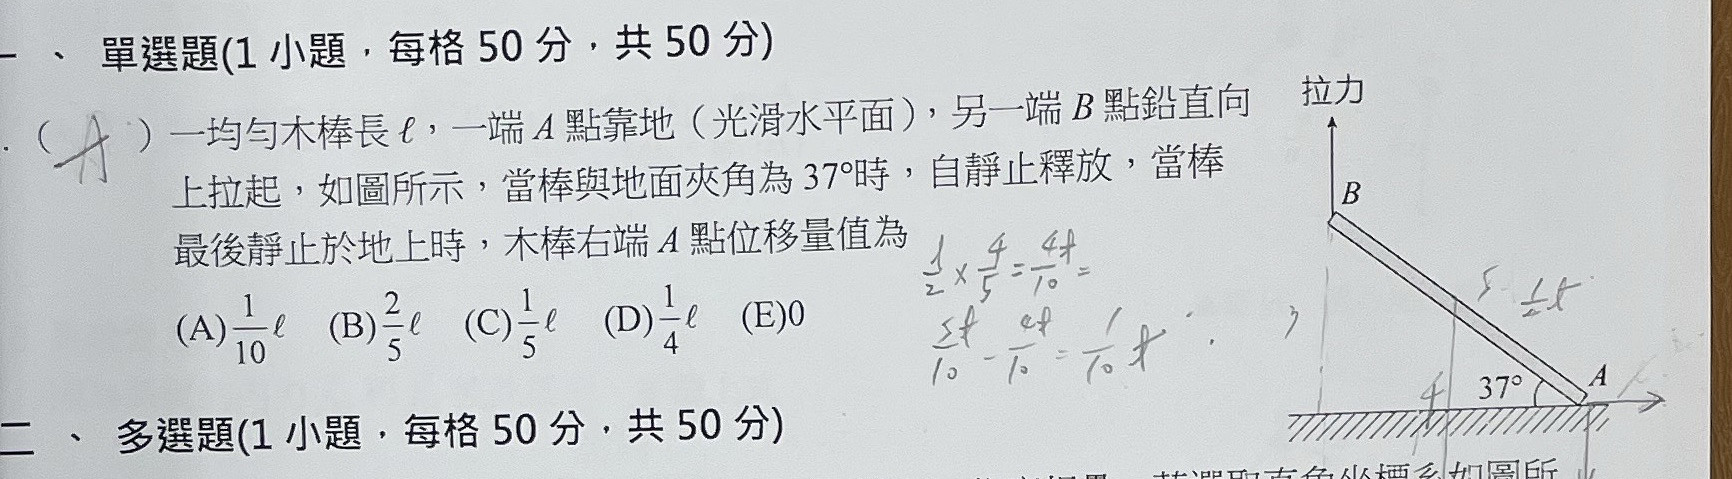 一、單選題(1 小題，每格 50 分，共 50 分)
.( A ) 一均勻木棒長 ℓ，一端 A 點靠地（光滑水平面），另一端 B 點鉛直向
上拉起，如圖所示，當棒與地面夾角為 37°時，自靜止釋放，當棒
最後靜止於地上時，木棒右端 A 點位移量值為
(A) 1/10 ℓ (B) 2/5 ℓ (C) 1/5 ℓ (D) 1/4 ℓ (E)0
1/2 × 4/5 = 4ℓ/10 =
5ℓ/10 - 4ℓ/10 = 1/10 ℓ
拉力
B
5
1/2 ℓ
A
37°
4
二、多選題(1 小題，每格 50 分，共 50 分)